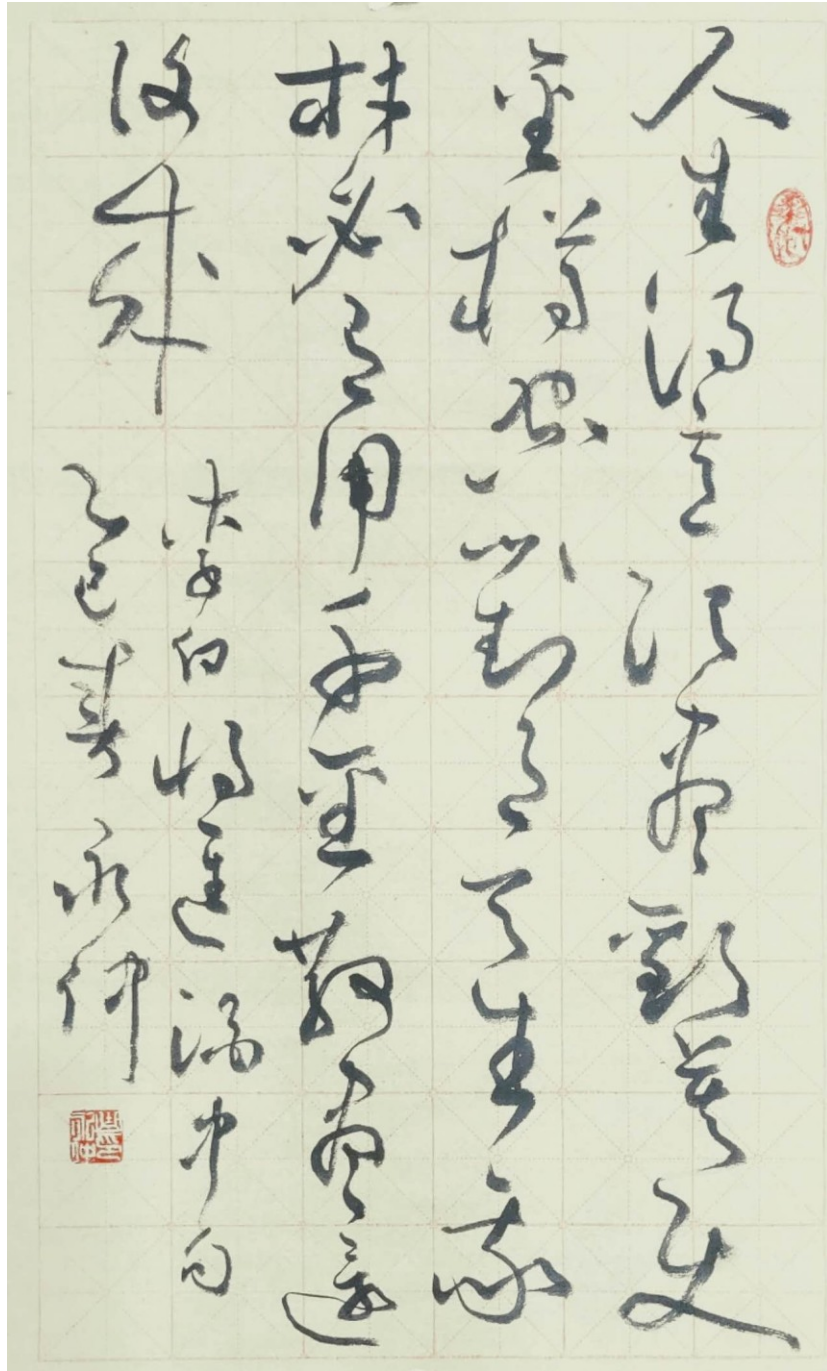 人生得意須盡歡莫使
金樽空對月天生我
材必有用千金散盡還
復來
李白將進酒中句
乙巳春永仲